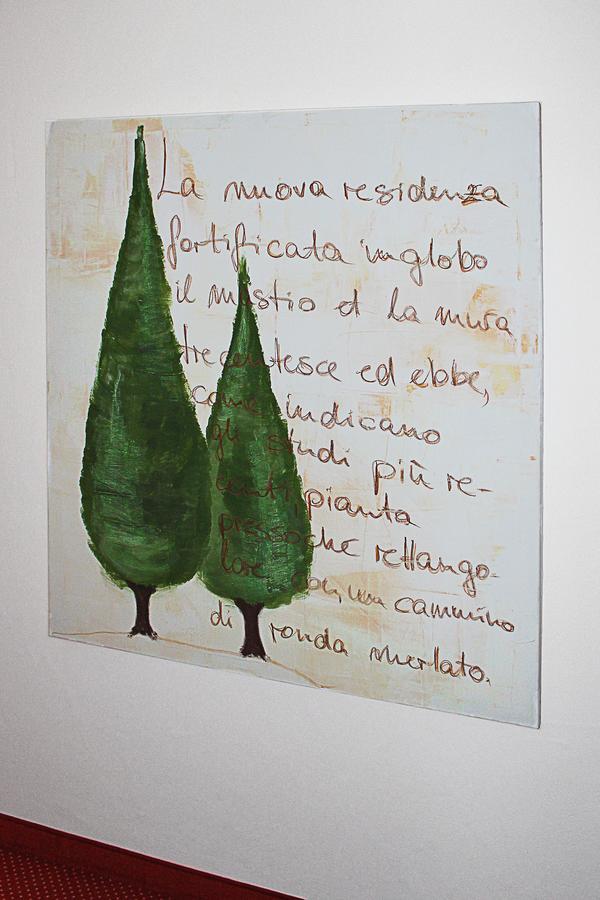 La nuova residenza
fortificata inglobo
il mastio et la mura
trecentesce ed ebbe,
come indicano
gli studi più re-
centi pianta
pressoche rettango-
lare con, un cammino
di ronda merlato.